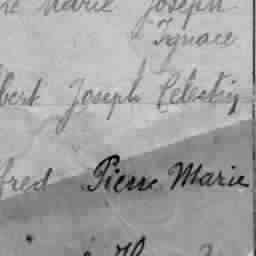 Marie Joseph
Ignace
bert Joseph Célestin
fred Pierre Marie